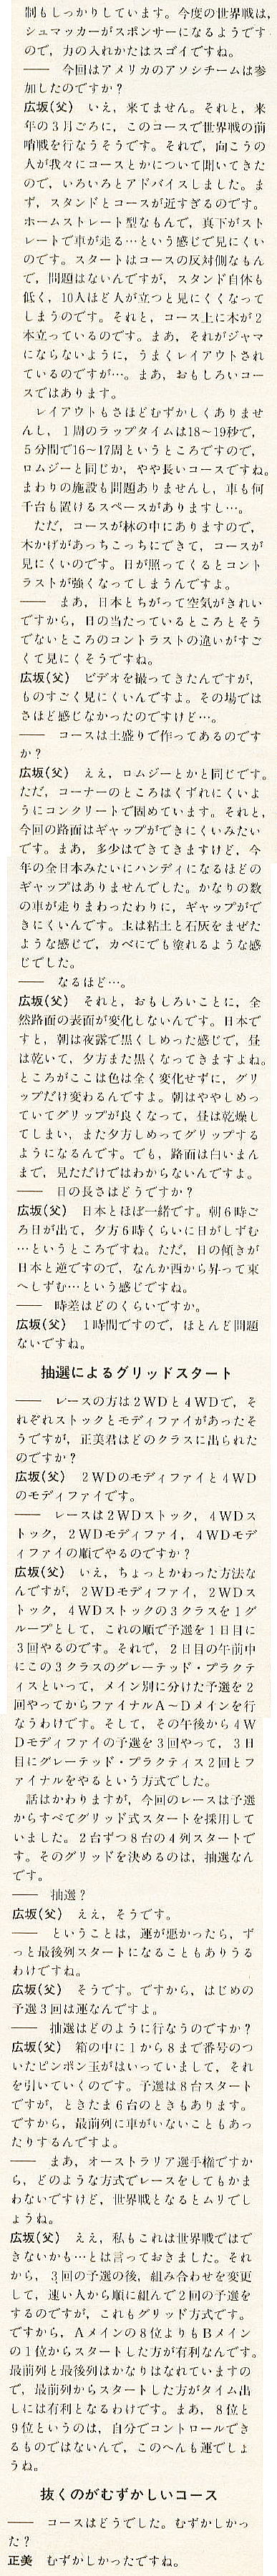 制もしっかりしています。今度の世界戦は,
シュマッカーがスポンサーになるようです
ので, 力の入れかたはスゴイですね。
―― 今回はアメリカのアソシチームは参
加したのですか?
広坂(父) いえ, 来てません。それと, 来
年の3月ごろに, このコースで世界戦の前
哨戦を行なうそうです。それで, 向こうの
人が我々にコースとかについて聞いてきた
ので, いろいろとアドバイスしました。ま
ず, スタンドとコースが近すぎるのです。
ホームストレート型なもんで, 真下がスト
レートで車が走る…という感じで見にくい
のです。スタートはコースの反対側なもん
で, 問題はないんですが, スタンド自体も
低く, 10人ほど人が立つと見にくくなって
しまうのです。それと, コース上に木が2
本立っているのです。まあ, それがジャマ
にならないように, うまくレイアウトされ
ているのですが…。まあ, おもしろいコー
スではあります。
レイアウトもさほどむずかしくありませ
んし, 1周のラップタイムは18〜19秒で,
5分間で16〜17周というところですので,
ロムジーと同じか, やや長いコースですね。
まわりの施設も問題ありませんし, 車も何
千台も置けるスペースがありますし…。
ただ, コースが林の中にありますので,
木かげがあっちこっちにできて, コースが
見にくいのです。日が照ってくるとコント
ラストが強くなってしまうんですよ。
―― まあ, 日本とちがって空気がきれい
ですから, 日の当たっているところとそう
でないところのコントラストの違いがすご
くて見にくそうですね。
広坂(父) ビデオを撮ってきたんですが,
ものすごく見にくいんですよ。その場では
さほど感じなかったのですけど…。
―― コースは土盛りで作ってあるのです
か?
広坂(父) ええ, ロムジーとかと同じです。
ただ, コーナーのところはくずれにくいよ
うにコンクリートで固めています。それと,
今回の路面はギャップができにくいみたい
です。まあ, 多少はできてきますけど, 今
年の全日本みたいにハンディになるほどの
ギャップはありませんでした。かなりの数
の車が走りまわったわりに, ギャップがで
きにくいんです。土は粘土と石灰をまぜた
ような感じで, カベにでも塗れるような感
じでした。
―― なるほど…。
広坂(父) それと, おもしろいことに, 全
然路面の表面が変化しないんです。日本で
すと, 朝は夜露で黒くしめった感じで, 昼
は乾いて, 夕方また黒くなってきますよね。
ところがここは色は全く変化せずに, グリ
ップだけ変わるんですよ。朝はややしめっ
ていてグリップが良くなって, 昼は乾燥し
てしまい, また夕方しめってグリップする
ようになるんです。でも, 路面は白いまん
まで, 見ただけではわからないんですよ。
―― 日の長さはどうですか?
広坂(父) 日本とほぼ一緒です。朝6時ご
ろ日が出て, 夕方6時くらいに日がしずむ
…というところですね。ただ, 日の傾きが
日本と逆ですので, なんか西から昇って東
へしずむ…という感じですね。
―― 時差はどのくらいですか。
広坂(父) 1時間ですので, ほとんど問題
ないですね。
抽選によるグリッドスタート
―― レースの方は2WDと4WDで, そ
れぞれストックとモディファイがあったそ
うですが, 正美君はどのクラスに出られた
のですか?
広坂(父) 2WDのモディファイと4WD
のモディファイです。
―― レースは2WDストック, 4WDス
トック, 2WDモディファイ, 4WDモデ
ィファイの順でやるのですか?
広坂(父) いえ, ちょっとかわった方法な
んですが, 2WDモディファイ, 2WDス
トック, 4WDストックの3クラスを1グ
ループとして, これの順で予選を1日目に
3回やるのです。それで, 2日目の午前中
にこの3クラスのグレーテッド・プラクテ
ィスといって, メイン別に分けた予選を2
回やってからファイナルA〜Dメインを行
なうわけです。そして, その午後から4W
Dモディファイの予選を3回やって, 3日
目にグレーテッド・プラクティス2回とフ
ァイナルをやるという方式でした。
話はかわりますが, 今回のレースは予選
からすべてグリッド式スタートを採用して
いました。2台ずつ8台の4列スタートで
す。そのグリッドを決めるのは, 抽選なん
です。
―― 抽選?
広坂(父) ええ, そうです。
―― ということは, 運が悪かったら, ず
っと最後列スタートになることもありうる
わけですね。
広坂(父) そうです。ですから, はじめの
予選3回は運なんですよ。
―― 抽選はどのように行なうのですか?
広坂(父) 箱の中に1から8まで番号のつ
いたピンポン玉がはいっていまして, それ
を引いていくのです。予選は8台スタート
ですが, ときたま6台のときもあります。
ですから, 最前列に車がいないこともあっ
たりするんですよ。
―― まあ, オーストラリア選手権ですか
ら, どのような方式でレースをしてもかま
わないですけど, 世界戦となるとムリでし
ょうね。
広坂(父) ええ, 私もこれは世界戦ではで
きないかも…とは言っておきました。それ
から, 3回の予選の後, 組み合わせを変更
して, 速い人から順に組んで2回の予選を
するのですが, これもグリッド方式です。
ですから, Aメインの8位よりもBメイン
の1位からスタートした方が有利なんです。
最前列と最後列はかなりはなれていますの
で, 最前列からスタートした方がタイム出
しには有利となるわけです。まあ, 8位と
9位というのは, 自分でコントロールでき
るものではないんで, このへんも運でしょ
うね。
抜くのがむずかしいコース
―― コースはどうでした。むずかしかっ
た?
正美 むずかしかったですね。